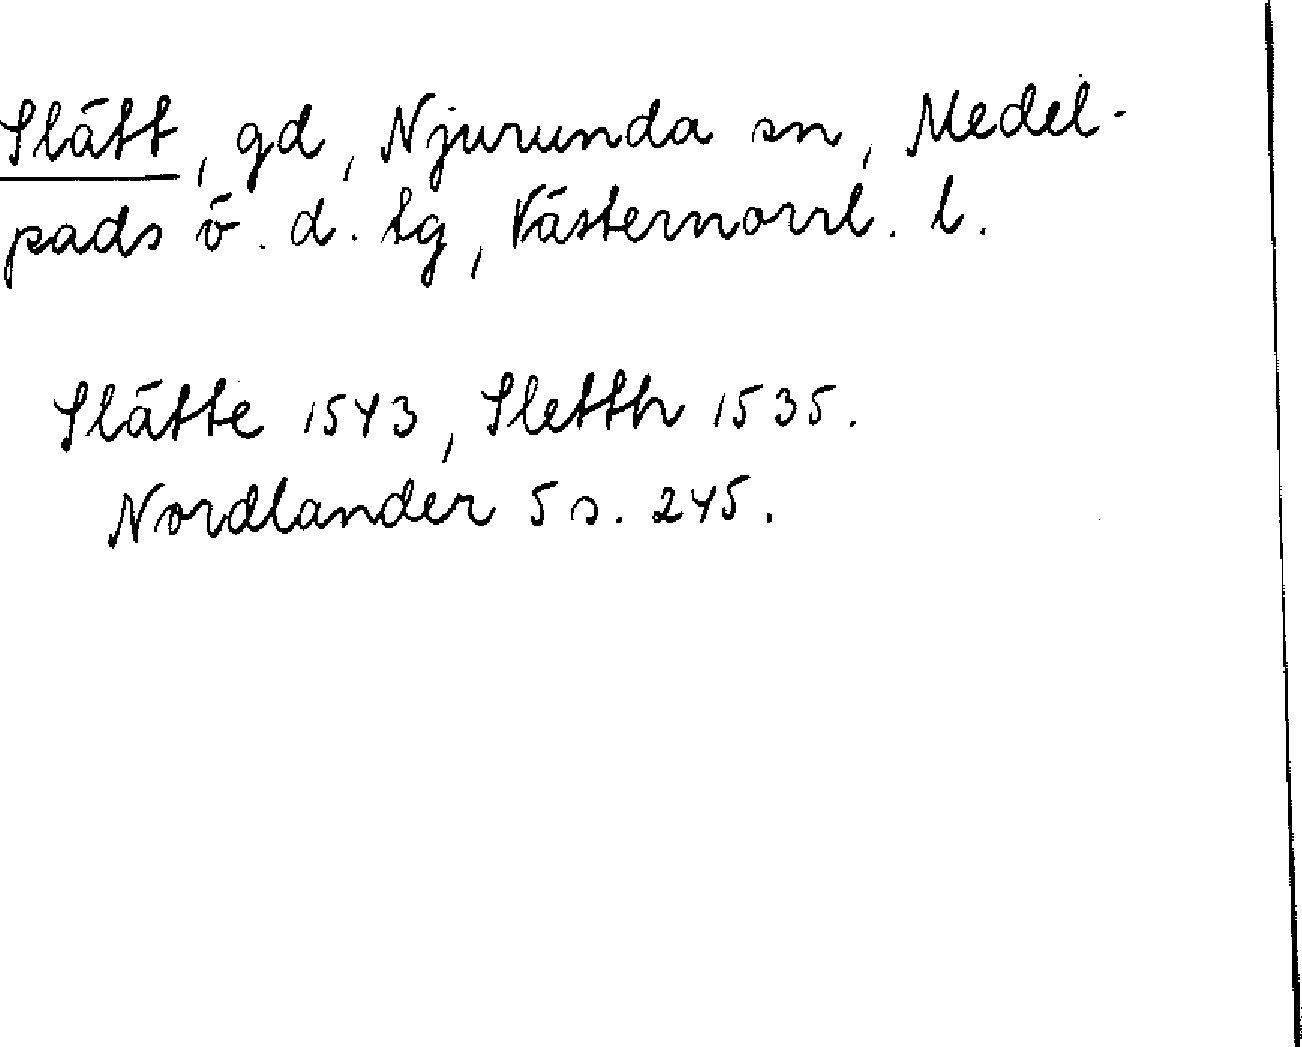 Slätt, gd, Njurunda sn, Medel-
pads ö. d. tg, Västernorrl. l.
Slätte 1543, Sletth 1535.
Nordlander 5 s. 245.